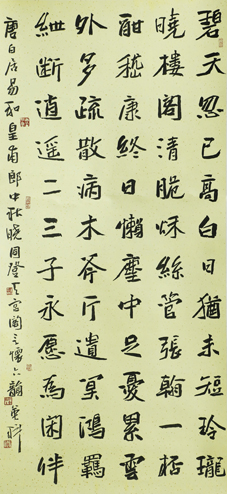 碧天忽已高白日猶未短玲瓏
曉樓閣清脆秋絲管張翰一桮
酣嵇康終日懶塵中足憂累雲
外多疏散病木斧斤遺冥鴻羈
紲斷逍遥二三子永愿為閑伴
唐白居易和皇甫郎中秋曉同登天宫閣言懷六韻